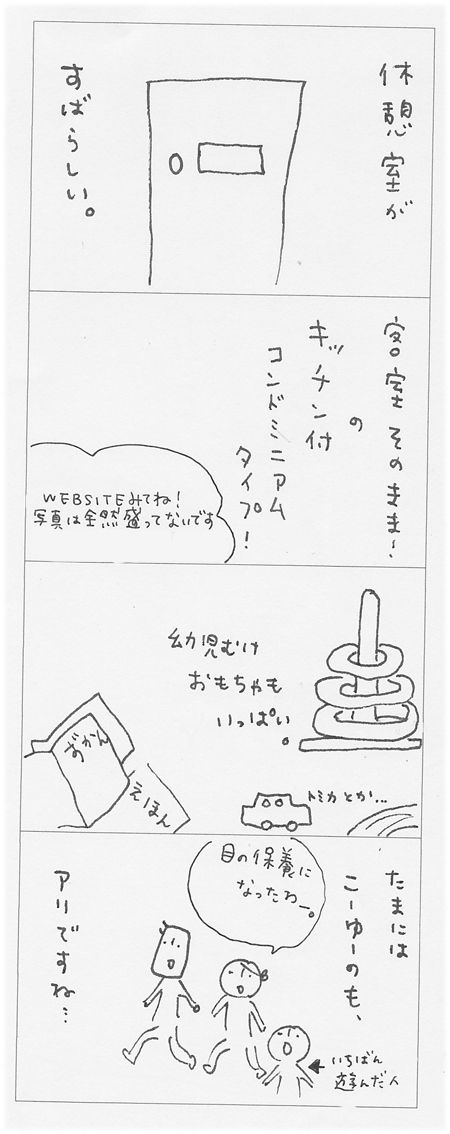 休憩室が
すばらしい。
客室そのまま!
の
キッチン付
コンドミニアム
タイプ!
WEBSITEみてね!
写真は全然盛ってないです
幼児むけ
おもちゃも
いっぱい。
ずかん
えほん
トミカとか…
たまには
こーゆーのも、
目の保養に
なったわー。
アリですね…
いちばん
遊んだ人